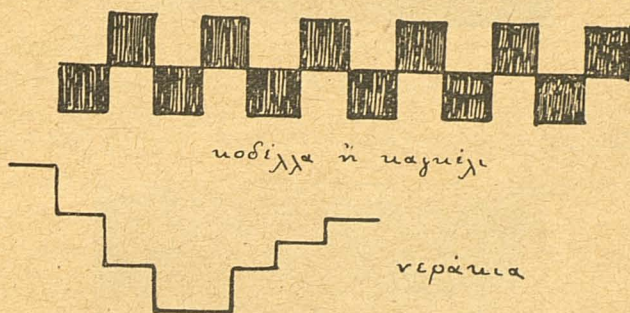 κοδέλλα ἤ καγκέλι
νεράκια